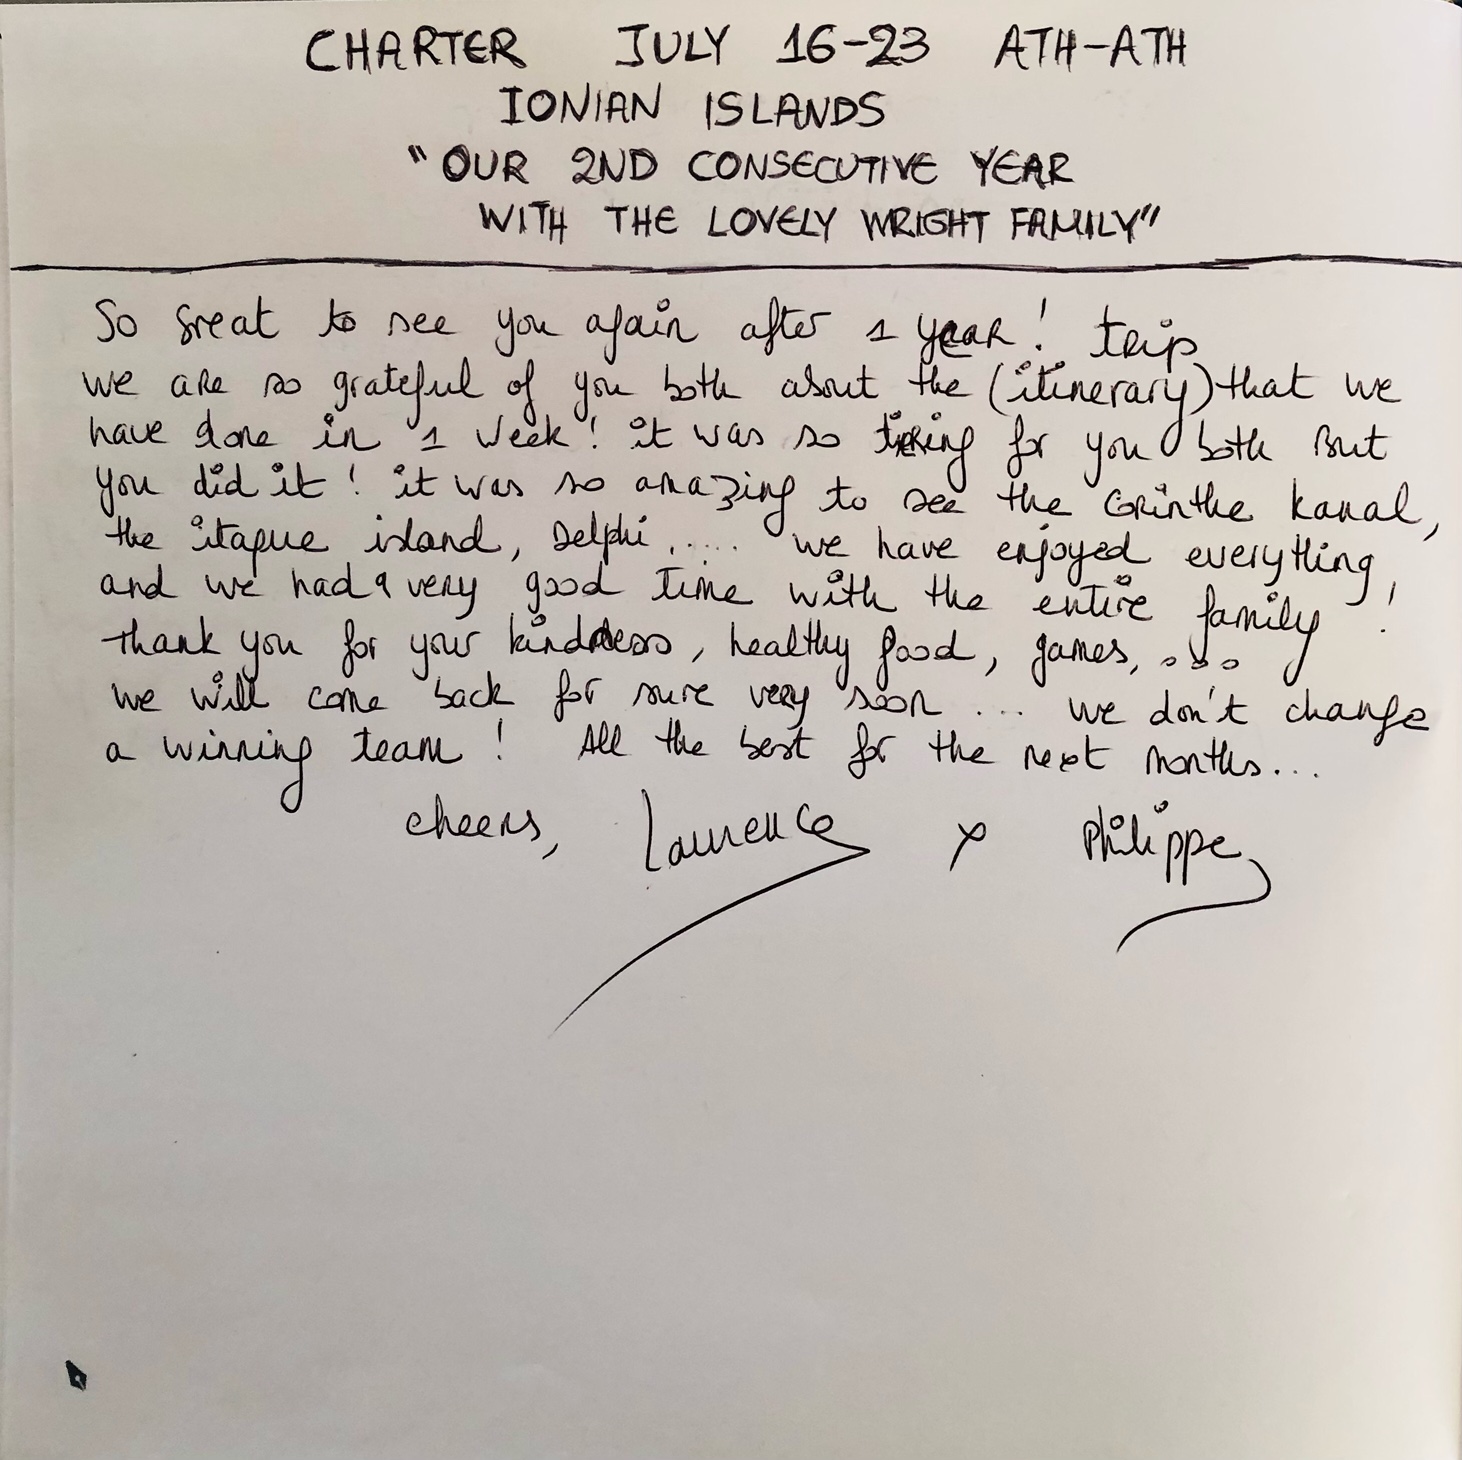 CHARTER JULY 16-23 ATH-ATH
IONIAN ISLANDS
"OUR 2ND CONSECUTIVE YEAR
WITH THE LOVELY WRIGHT FAMILY"
So great to see you again after 1 year! trip
we are so grateful of you both about the (itinerary) that we
have done in 1 week! it was so tiring for you both But
you did it! it was so amazing to see the Corinthe kanal,
the itaque island, Delphi, .... we have enjoyed everything,
and we had a very good time with the entire family!
thank you for your kindness, healthy food, games, ...
we will come back for sure very soon ... we don't change
a winning team! All the best for the next months...
cheers, Laurence x Philippe